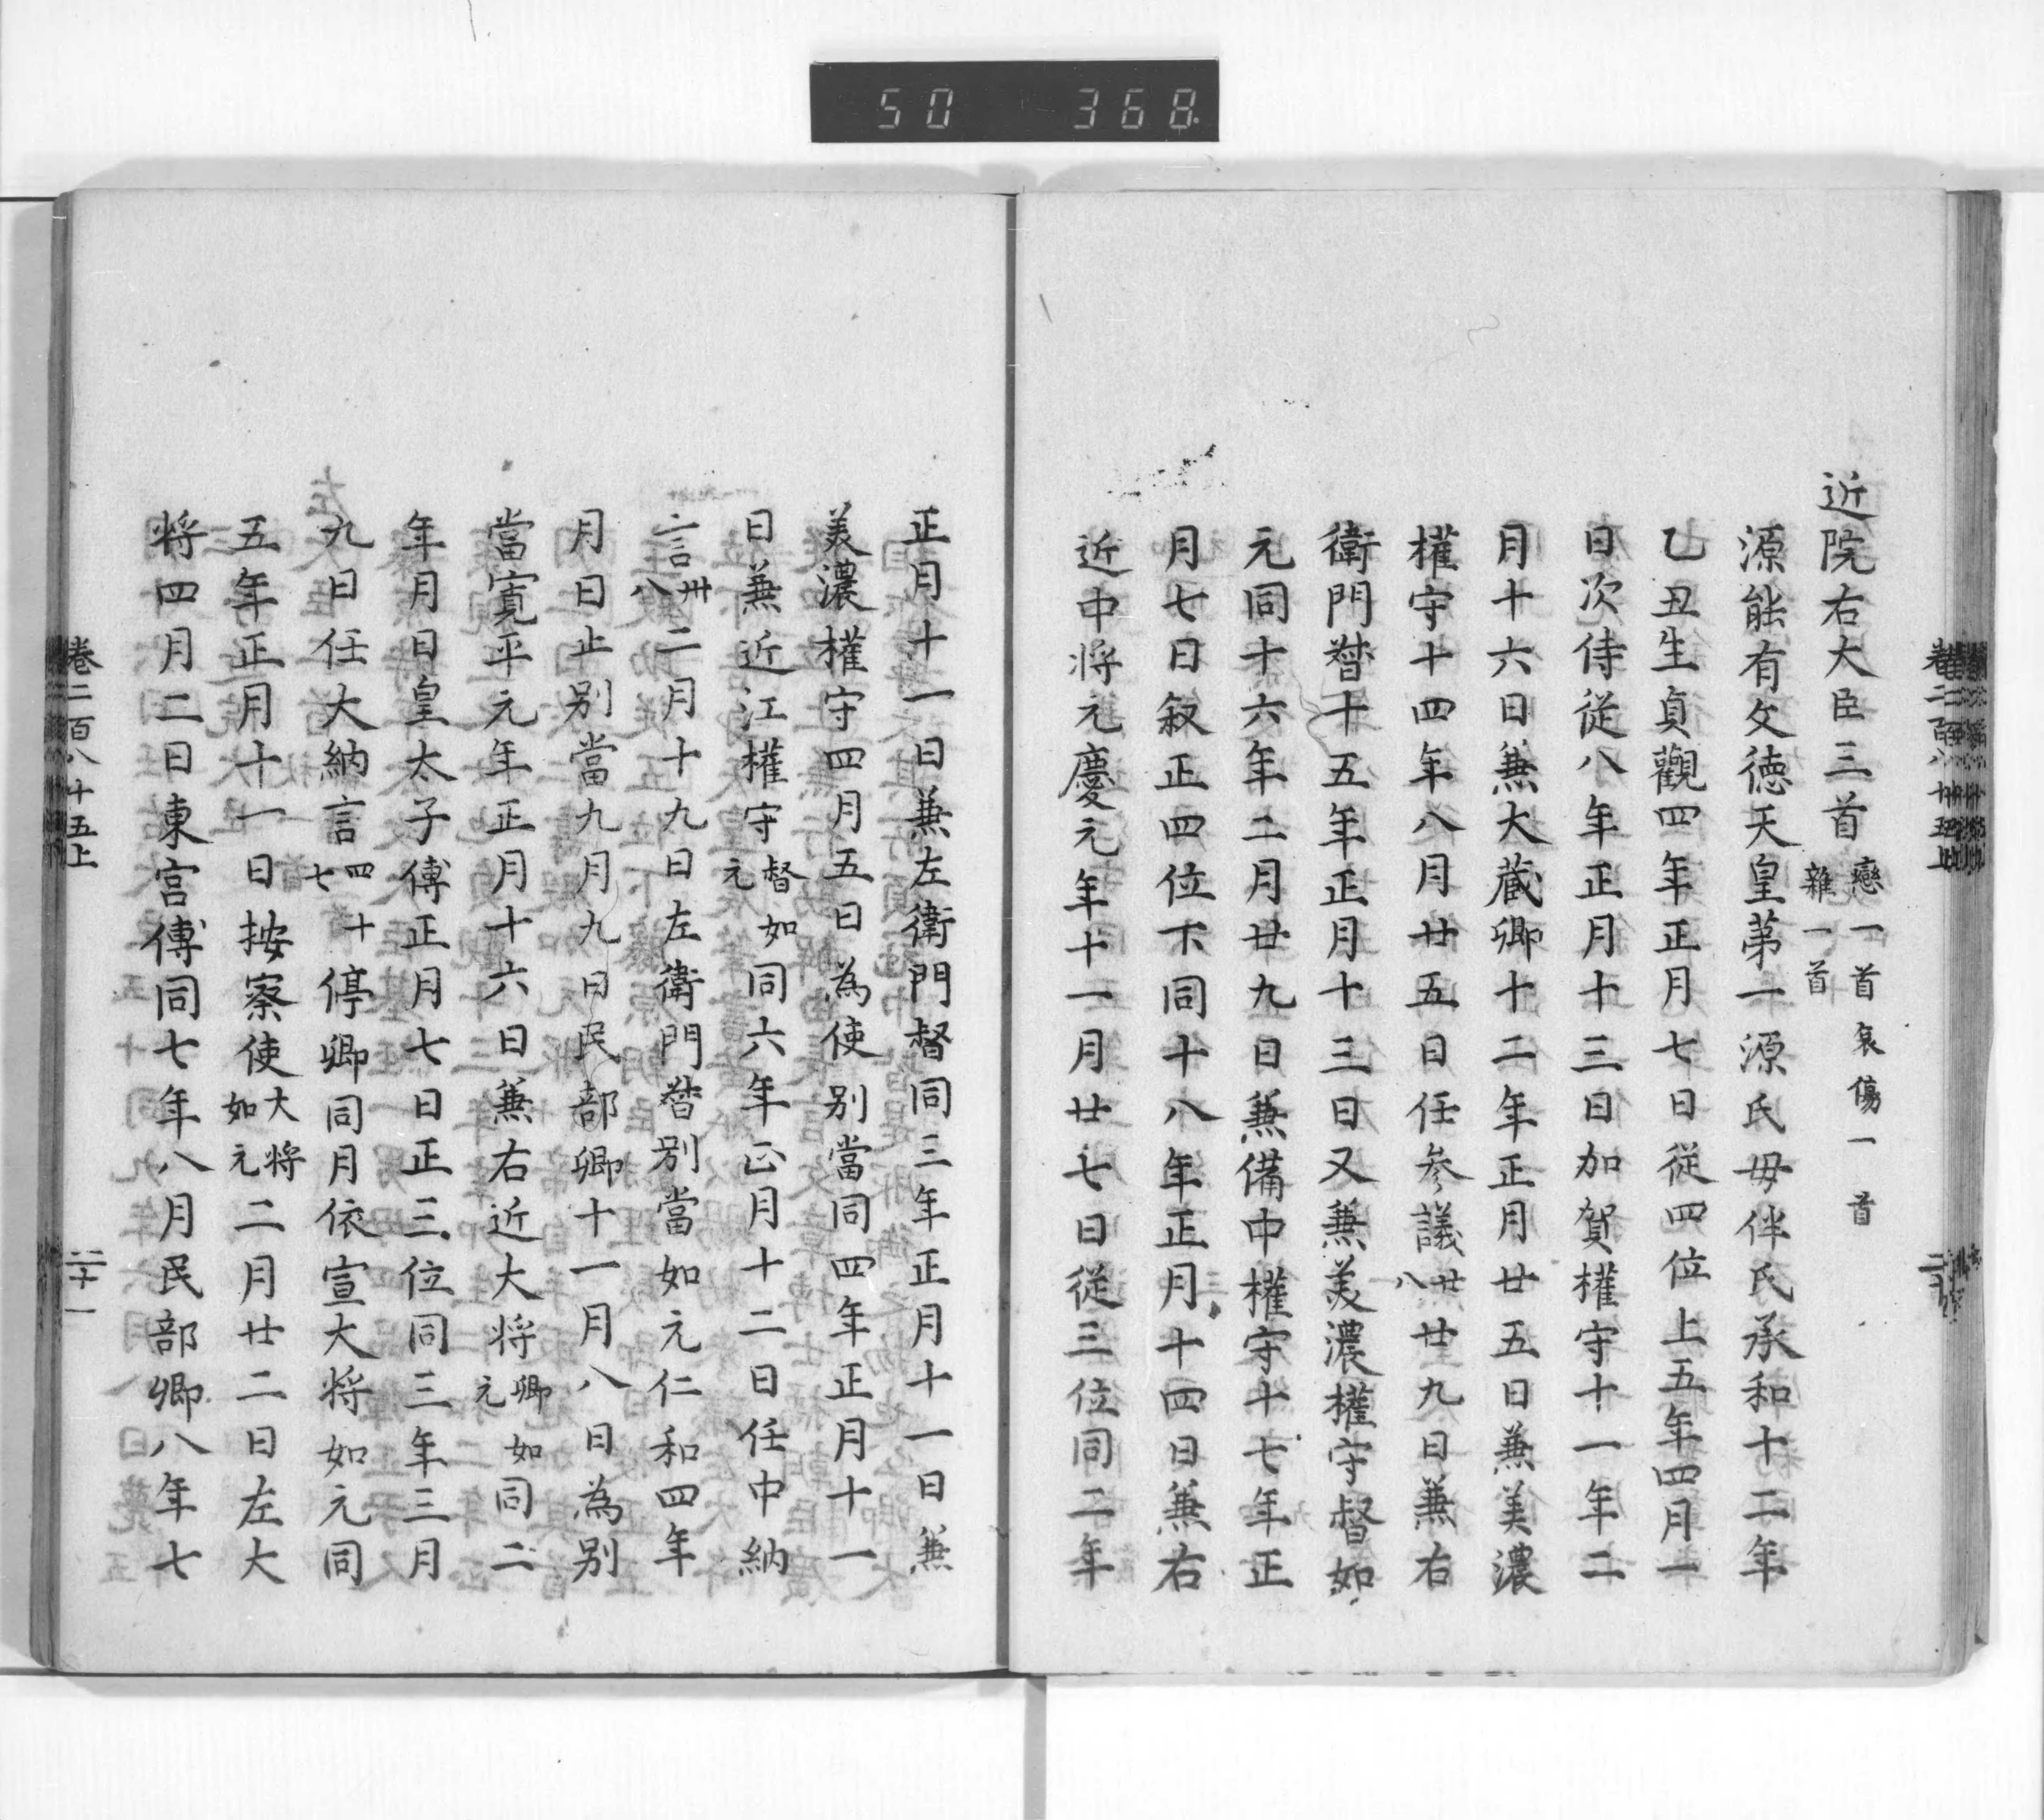 50 368
近院右大臣三首 戀一首 哀傷一首 雜一首
源能有文徳天皇第一源氏毋伴氏承和十二年
乙丑生貞觀四年正月七日従四位上五年四月一
日次侍従八年正月十三日加賀權守十一年二
月十六日兼大蔵卿十二年正月廿五日兼美濃
權守十四年八月廿五日任参議廿八廿九日兼右
衛門督十五年正月十三日又兼美濃權守督如
元同十六年二月廿九日兼備中權守十七年正
月七日叙正四位下同十八年正月十四日兼右
近中将元慶元年十一月廿七日従三位同二年
正月十一日兼左衛門督同三年正月十一日兼
美濃權守四月五日為使別當同四年正月十一
日兼近江權守督如元同六年正月十二日任中納
言卅八二月十九日左衛門督別當如元仁和四年
月日止別當九月九日民部卿十一月八日為別
當寛平元年正月十六日兼右近大将卿如元同二
年月日皇太子傅正月七日正三位同三年三月
九日任大納言四十七停卿同月依宣大将如元同
五年正月十一日按察使大将如元二月廿二日左大
将四月二日東宮傅同七年八月民部卿八年七
卷二百八十五上 二十一